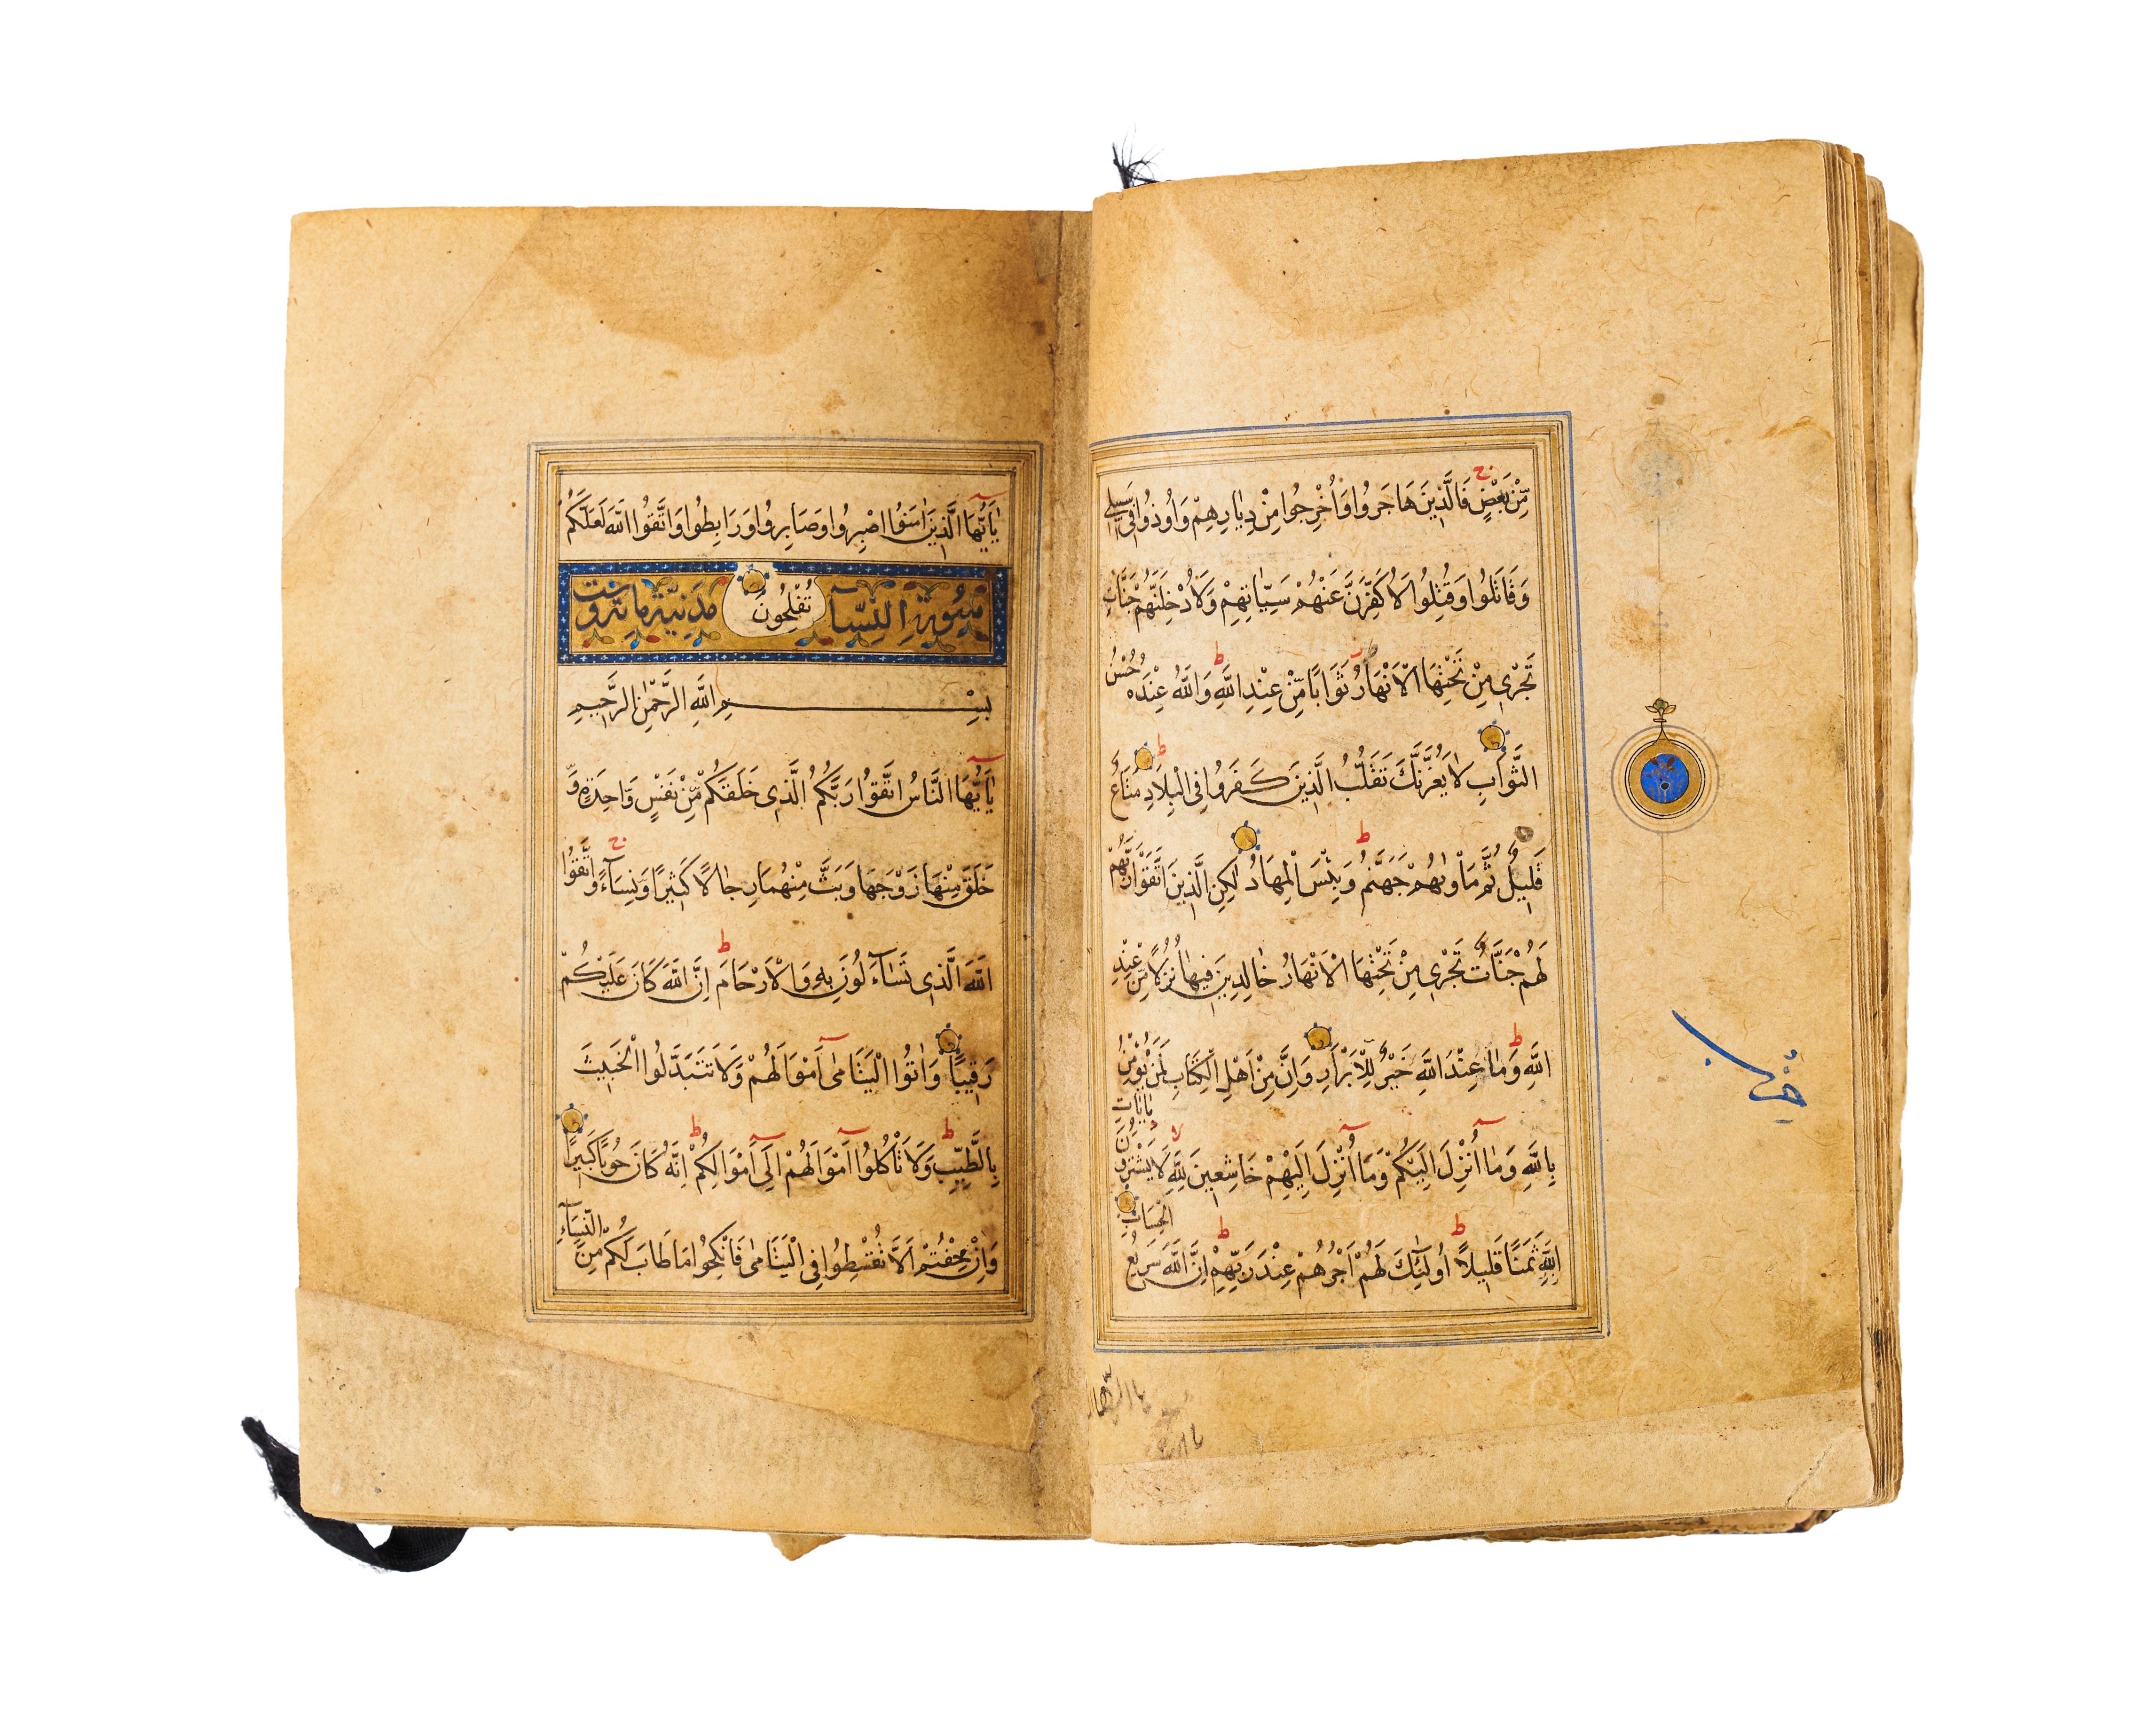 مِّنْ بَعْضٍ فَالَّذِينَ هَاجَرُوا وَاُخْرِجُوا مِنْ دِيَارِهِمْ وَاُوذُوا فِى سَبِيلِى
وَقَاتَلُوا وَقُتِلُوا لَاُكَفِّرَنَّ عَنْهُمْ سَيِّئَاتِهِمْ وَلَاُدْخِلَنَّهُمْ جَنَّاتٍ
تَجْرِى مِنْ تَحْتِهَا الْاَنْهَارُ ثَوَابًا مِّنْ عِنْدِ اللَّهِ وَاللَّهُ عِنْدَهُ حُسْنُ
الثَّوَابِ لَا يَغُرَّنَّكَ تَقَلُّبُ الَّذِينَ كَفَرُوا فِى الْبِلَادِ مَتَاعٌ
قَلِيلٌ ثُمَّ مَاْوٰيهُمْ جَهَنَّمُ وَبِئْسَ الْمِهَادُ لٰكِنِ الَّذِينَ اتَّقَوْا رَبَّهُمْ
لَهُمْ جَنَّاتٌ تَجْرِى مِنْ تَحْتِهَا الْاَنْهَارُ خَالِدِينَ فِيهَا نُزُلًا مِّنْ عِنْدِ
اللَّهِ وَمَا عِنْدَ اللَّهِ خَيْرٌ لِلْاَبْرَارِ وَاِنَّ مِنْ اَهْلِ الْكِتَابِ لَمَنْ يُؤْمِنُ
بِاللَّهِ وَمَا اُنْزِلَ اِلَيْكُمْ وَمَا اُنْزِلَ اِلَيْهِمْ خَاشِعِينَ لِلَّهِ لَا يَشْتَرُونَ بِاٰيَاتِ
اللَّهِ ثَمَنًا قَلِيلًا اُولٰئِكَ لَهُمْ اَجْرُهُمْ عِنْدَ رَبِّهِمْ اِنَّ اللَّهَ سَرِيعُ الْحِسَابِ
يَا اَيُّهَا الَّذِينَ اٰمَنُوا اصْبِرُوا وَصَابِرُوا وَرَابِطُوا وَاتَّقُوا اللَّهَ لَعَلَّكُمْ
تُفْلِحُونَ
سُورَةُ النِّسَآءِ مَدَنِيَّة
بِسْمِ اللَّهِ الرَّحْمٰنِ الرَّحِيمِ
يَا اَيُّهَا النَّاسُ اتَّقُوا رَبَّكُمُ الَّذِى خَلَقَكُمْ مِّنْ نَفْسٍ وَاحِدَةٍ وَ
خَلَقَ مِنْهَا زَوْجَهَا وَبَثَّ مِنْهُمَا رِجَالًا كَثِيرًا وَنِسَآءً وَاتَّقُوا
اللَّهَ الَّذِى تَسَآءَلُونَ بِهِ وَالْاَرْحَامَ اِنَّ اللَّهَ كَانَ عَلَيْكُمْ
رَقِيبًا وَاٰتُوا الْيَتَامٰى اَمْوَالَهُمْ وَلَا تَتَبَدَّلُوا الْخَبِيثَ
بِالطَّيِّبِ وَلَا تَاْكُلُوا اَمْوَالَهُمْ اِلٰى اَمْوَالِكُمْ اِنَّهُ كَانَ حُوبًا كَبِيرًا
وَاِنْ خِفْتُمْ اَلَّا تُقْسِطُوا فِى الْيَتَامٰى فَانْكِحُوا مَا طَابَ لَكُمْ مِّنَ النِّسَآءِ